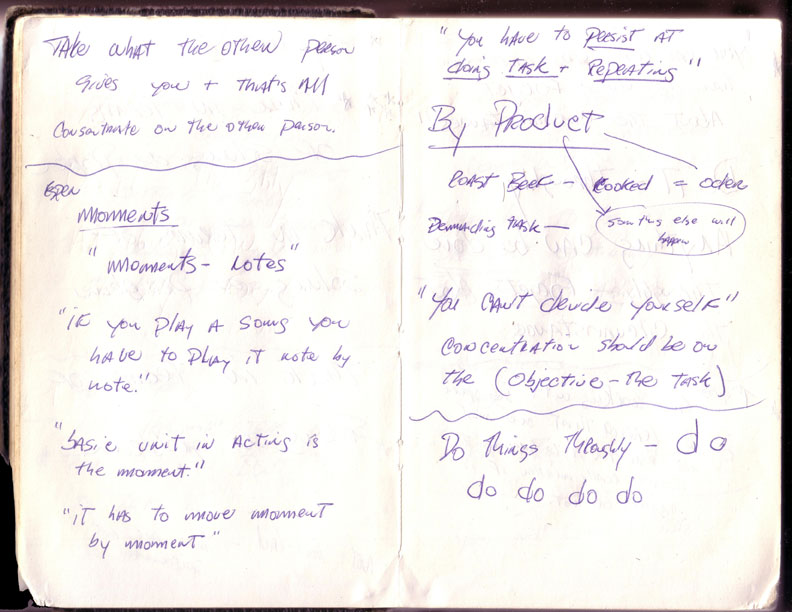 TAke what the other person
gives you + that's All
Consentrate on the other person.
MOMENTS
"MOMENTS- NOTES"
"IF you PlAY A SONG you
hAVE to PlAY it note by
note."
"bASic UNIT iN ActiNG is
the moment."
"iT hAS to move moment
by moment"
"You hAVE to PERSIST AT
doing TASK + REPEATiNG"
By PRoduct
ROAST BEEF - Cooked = oder
Demanding TASK —
Somthing else will
happen
"You CAN'T devide YourselF"
CONCENTRATION should be on
the (Objective - the TASK)
Do Things Throghly - do
do do do do